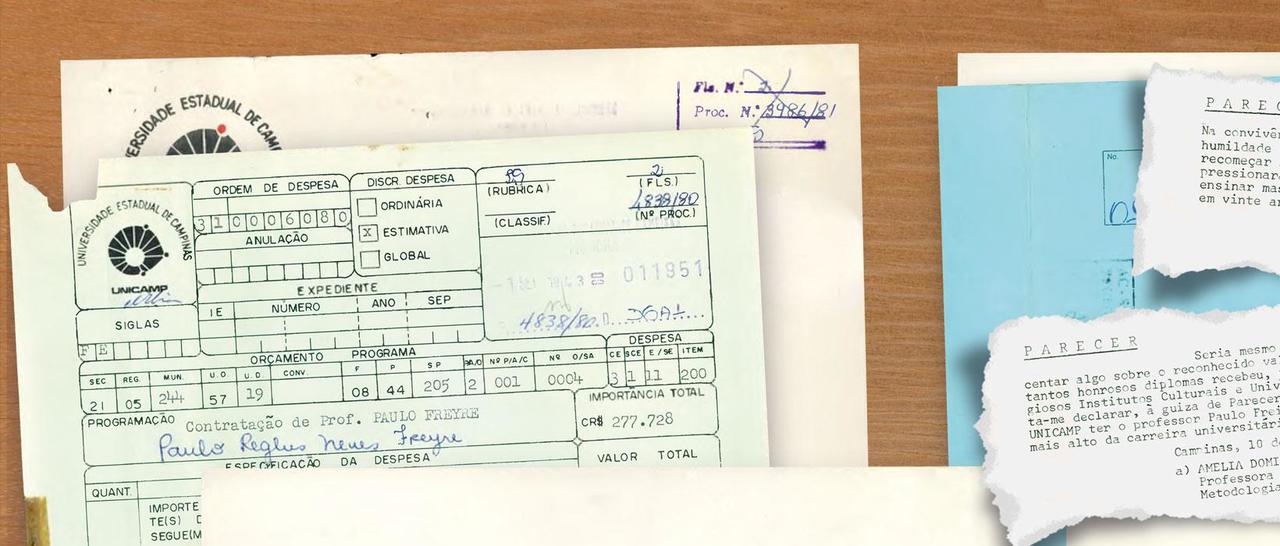 UNIVERSIDADE ESTADUAL DE CAMP
Fls. N.º 2
Proc. N.º 3986/81
ORDEM DE DESPESA
31 0006080
ANULAÇÃO
DISCR. DESPESA
ORDINÁRIA
X ESTIMATIVA
GLOBAL
(RUBRICA)
2
(FLS.)
4838/80
(Nº PROC.)
(CLASSIF.)
011951
4838/80
UNIVERSIDADE ESTADUAL DE CAMPINAS
UNICAMP
SIGLAS
FE
EXPEDIENTE
IE NÚMERO ANO SEP
ORÇAMENTO PROGRAMA
DESPESA
SEC. REG. MUN. U.O U.D. CONV. F P SP PA/O Nº P/A/C Nº O/SA CE SCE E/SE ITEM
21 05 244 57 19 08 44 205 2 001 0004 3 1 11 200
PROGRAMAÇÃO Contratação de Prof. PAULO FREYRE
Paulo Reglus Neves Freyre
IMPORTÂNCIA TOTAL
CR$ 277.728
ESPECIFICAÇÃO DA DESPESA
VALOR TOTAL
QUANT.
IMPORTE
TE(S) D
SEGUE(M
No.
PAREC
Na convivên
humildade
recomeçar
pressionara
ensinar ma
em vinte an
PARECER
Seria mesmo
centar algo sobre o reconhecido va
tantos honrosos diplomas recebeu,
giosos Institutos Culturais e Univ
ta-me declarar, à guiza de Parecer
UNICAMP ter o professor Paulo Frei
mais alto da carreira universitári
Campinas, 10 de
a) AMELIA DOMI
Professora
Metodologia